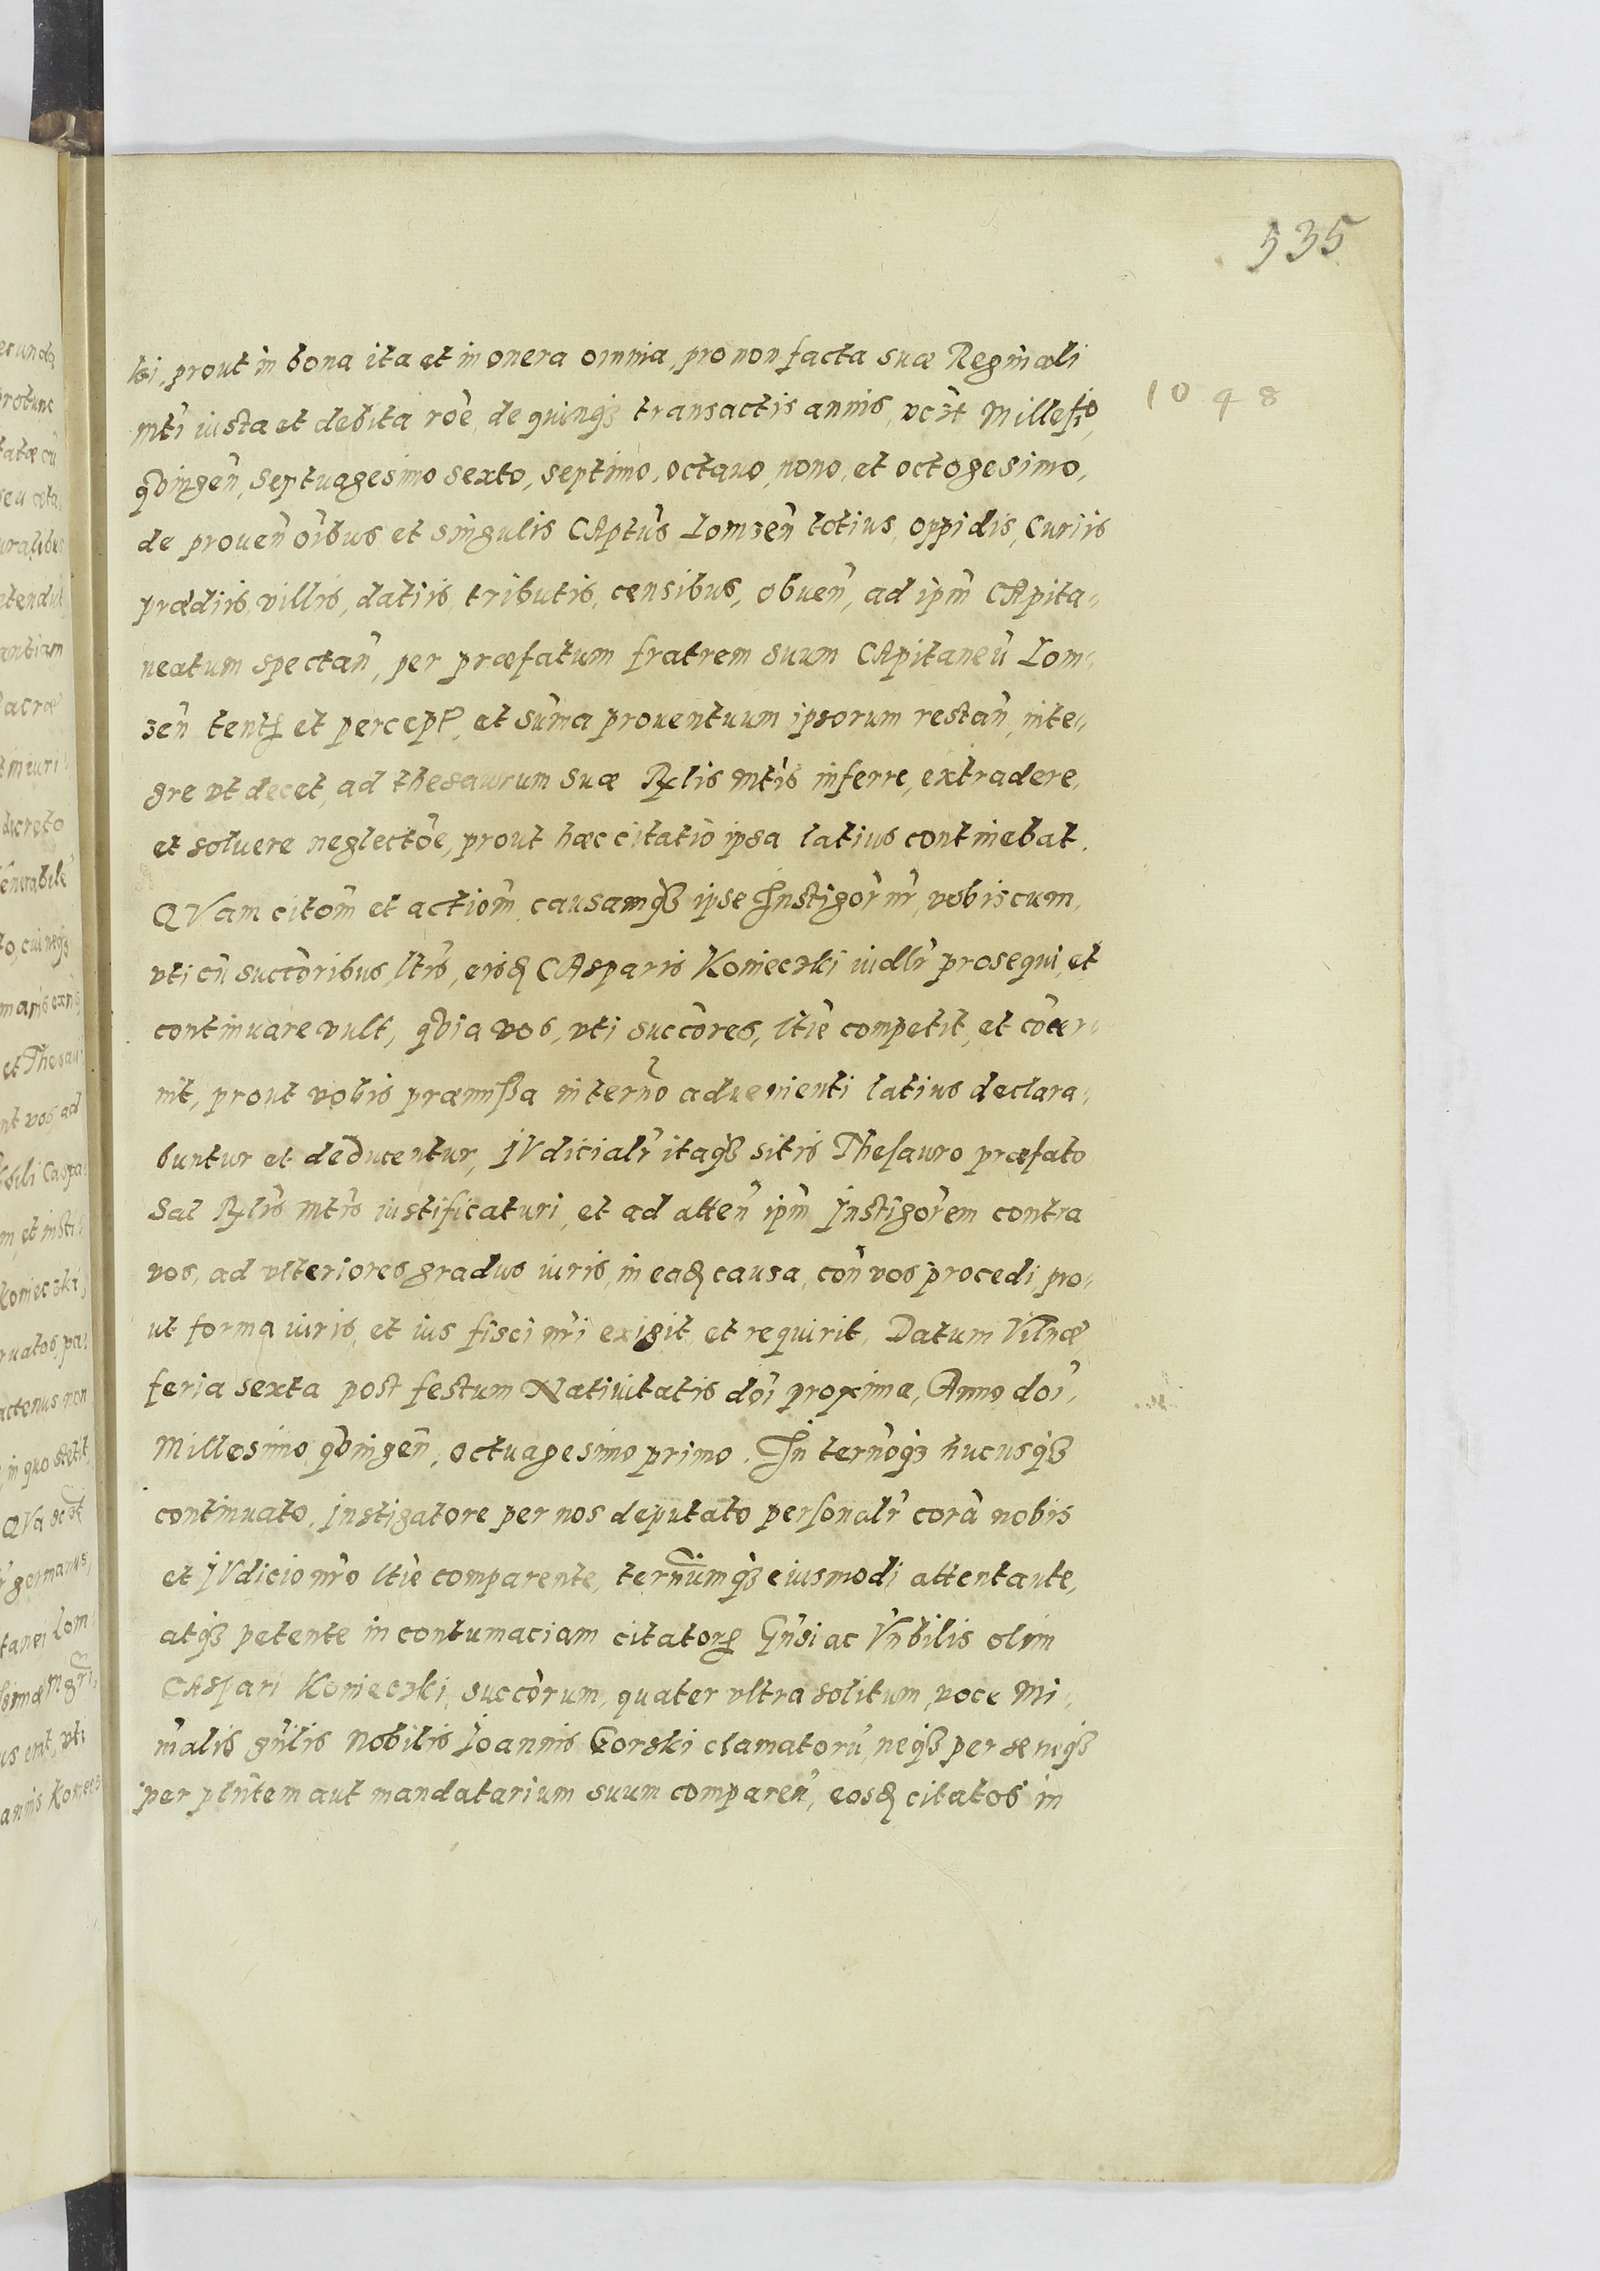 535
1048
ki, prout in bona ita et in onera omnia, pro non facta suæ Reginali
mti iusta et debita rõe, de quinqз transactis annis, vczt Millesio,
qvingeñ, septuagesimo sexto, septimo, octauo, nono, et octogesimo,
de proueñ oibus et singulis CAptus Lomzeñ totius, oppidis, Curiis
prædiis, villis, datiis, tributis, censibus, obueñ, ad ipm CApita-
neatum spectañ, per præfatum fratrem suum CApitaneũ Lom-
zeñ tent et percept, et summa prouentuum ipsorum restañ, inte-
gre vt decet, ad thesaurum suæ Rlis mtis inferre, extradere,
et soluere neglectõe, prout hæc citatio ipsa latius continebat.
QVam citom et actiom, causamqз ipse Instigor nr, vobiscum,
vti cũ succoribus, ltis, eisd CAsparis Konieczki iudlr prosequi, et
continuare vult, qvia vos, vti succores, ltie competit, et concer-
nit, prout vobis præmissa in termo aduenienti latius declara-
buntur et deducentur, IVdicialr itaqз sitis Thesauro præfato
Sal Rlis mtis iustificaturi, et ad atteñ ipm Instigorem contra
vos, ad vlteriores gradus iuris, in ead causa, coñ vos procedi, pro-
ut forma iuris, et ius fisci nri exigit et requirit. Datum Vilnæ
feria sexta post festum Natiuitatis doi proxima, Anno doi,
Millesimo, qvingeñ, octuagesimo primo. In termoqз hucusqз
continuato, Instigatore per nos deputato personalr corã nobis
et IVdicio nro ltie comparente, terminumqз eiusmodi attentante,
atqз petente in contumaciam citator Gnsi ac Vnbilis olim
CAspari Konieczki, succorum, quater vltra solitum, voce Mi-
nialis gnlis Nobilis Ioannis Gorski clamatorũ, neqз per se neqз
per plntem aut mandatarium suum compareñ, eosd citatos in